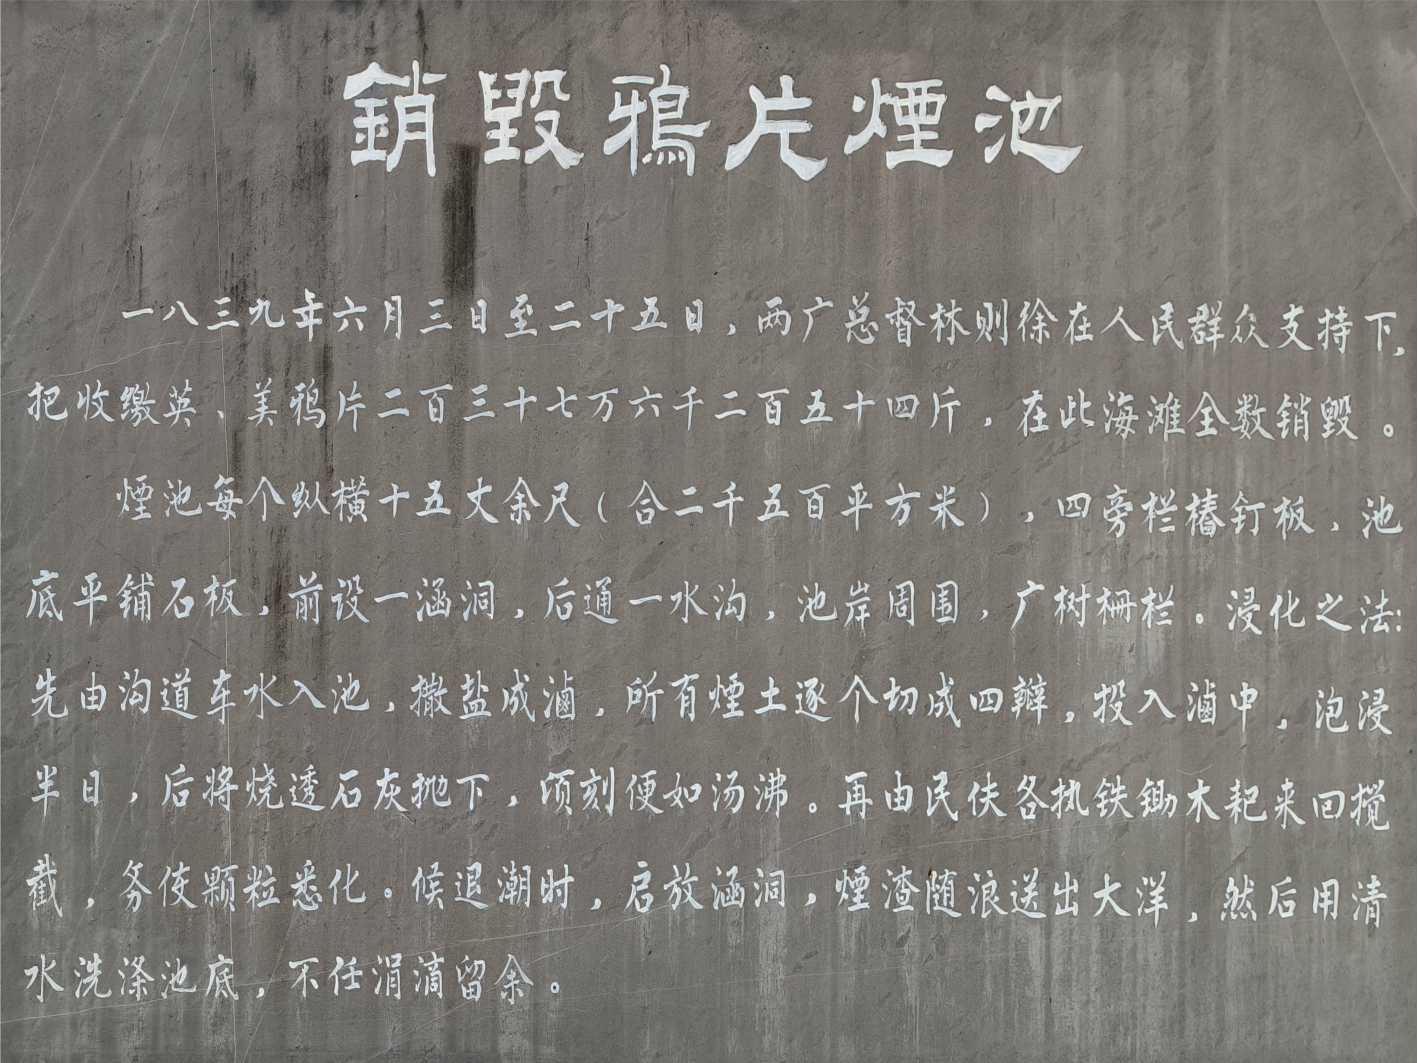 銷毀鴉片煙池
一八三九年六月三日至二十五日，两广总督林则徐在人民群众支持下，
把收缴英、美鸦片二百三十七万六千二百五十四斤，在此海滩全数销毁。
煙池每个纵横十五丈余尺（合二千五百平方米），四旁栏樁钉板，池
底平铺石板，前设一涵洞，后通一水沟，池岸周围，广树栅栏。浸化之法：
先由沟道车水入池，撒盐成滷，所有煙土逐个切成四瓣，投入滷中，泡浸
半日，后将烧透石灰抛下，顷刻便如汤沸。再由民伕各执铁锄木耙来回搅
截，务使颗粒悉化。候退潮时，启放涵洞，煙渣随浪送出大洋，然后用清
水洗涤池底，不任涓滴留余。